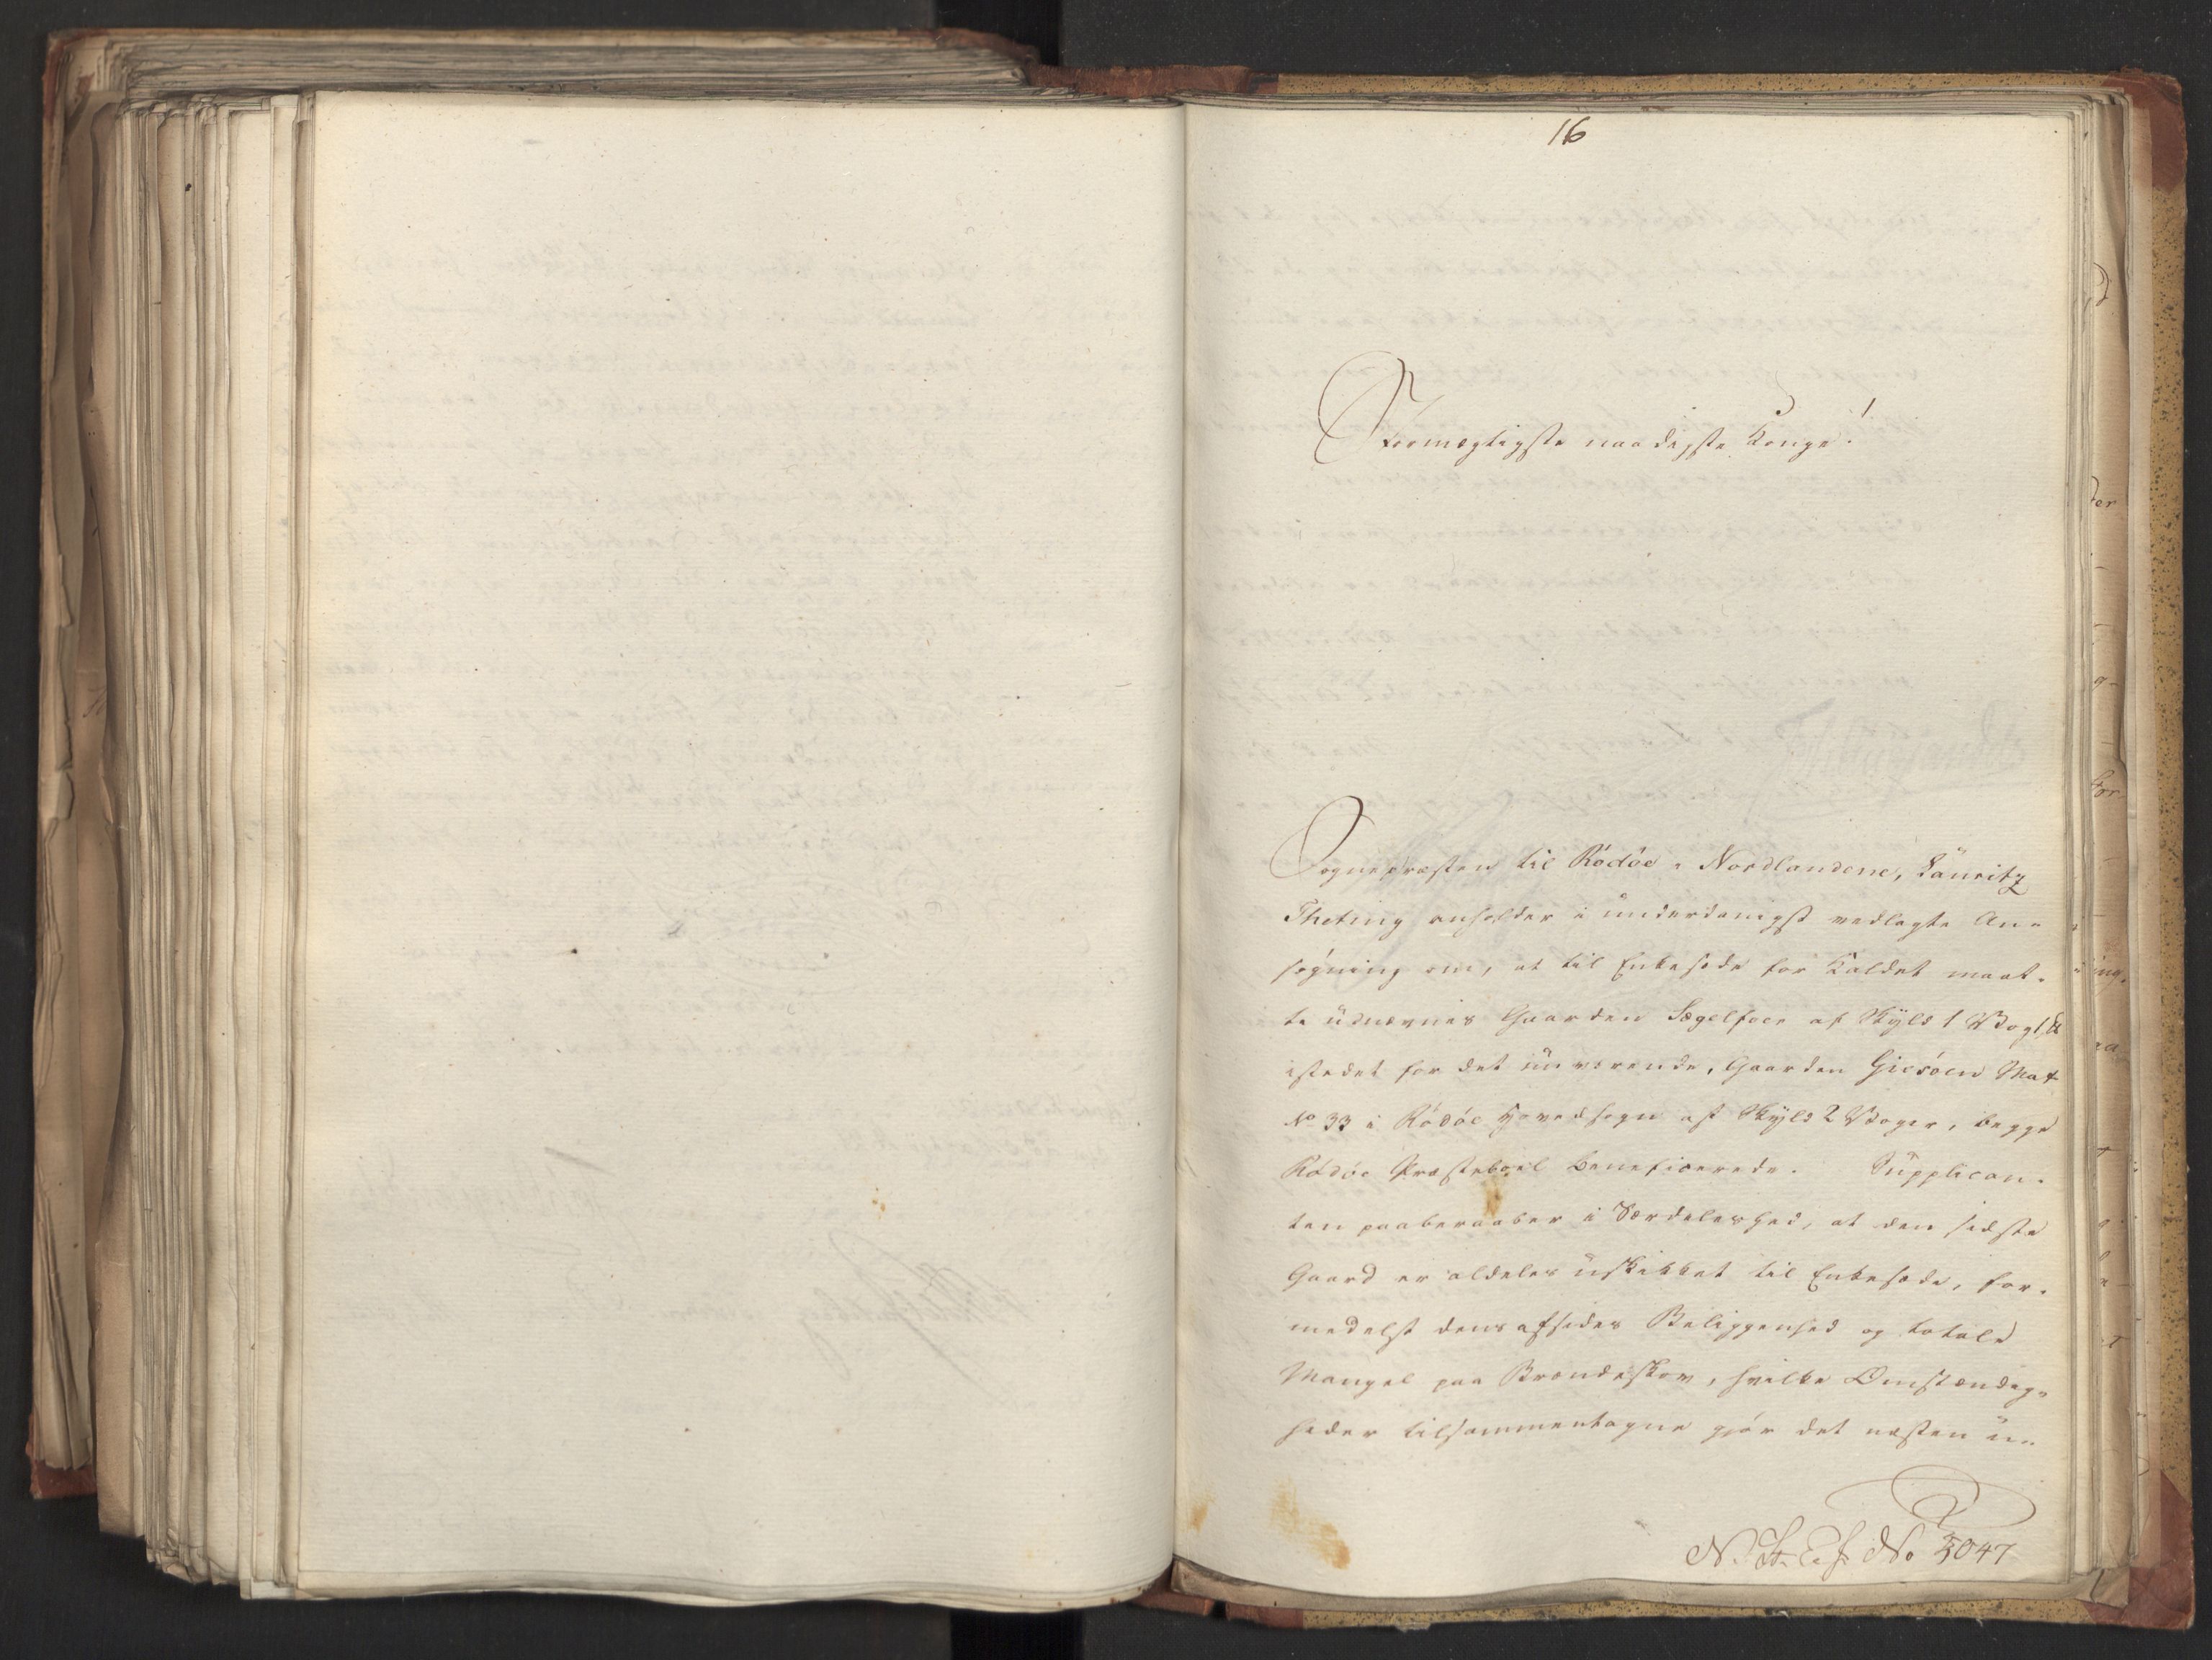 16
Stormægtigste naadigste Konge!
Sognepræsten til Rödöe i Nordlandene, Lauritz
Theting anholder i underdanigst vedlagte An-
søgning om, at til Enkesæde for Kaldet maat-
te udnævnes Gaarden Segelfoer af Skyld 1 Vog
istedet for det nuværende, Gaarden Giesöen Mat
No 33 i Rödöe Hovedsogn af Skyld 2 Voger, begge
Rödöe Præsteboel beneficerede. Supplican-
ten paaberaaber i Særdeleshed, at den sidste
Gaard er aldeles uskikket til Enkesæde, for-
medelst dens afsides Beliggenhed og totale
Mangel paa Brændeskov, hvilke Omstændig-
heder tilsammentagne gjør det næsten u-
N. St. E. f. No 5047